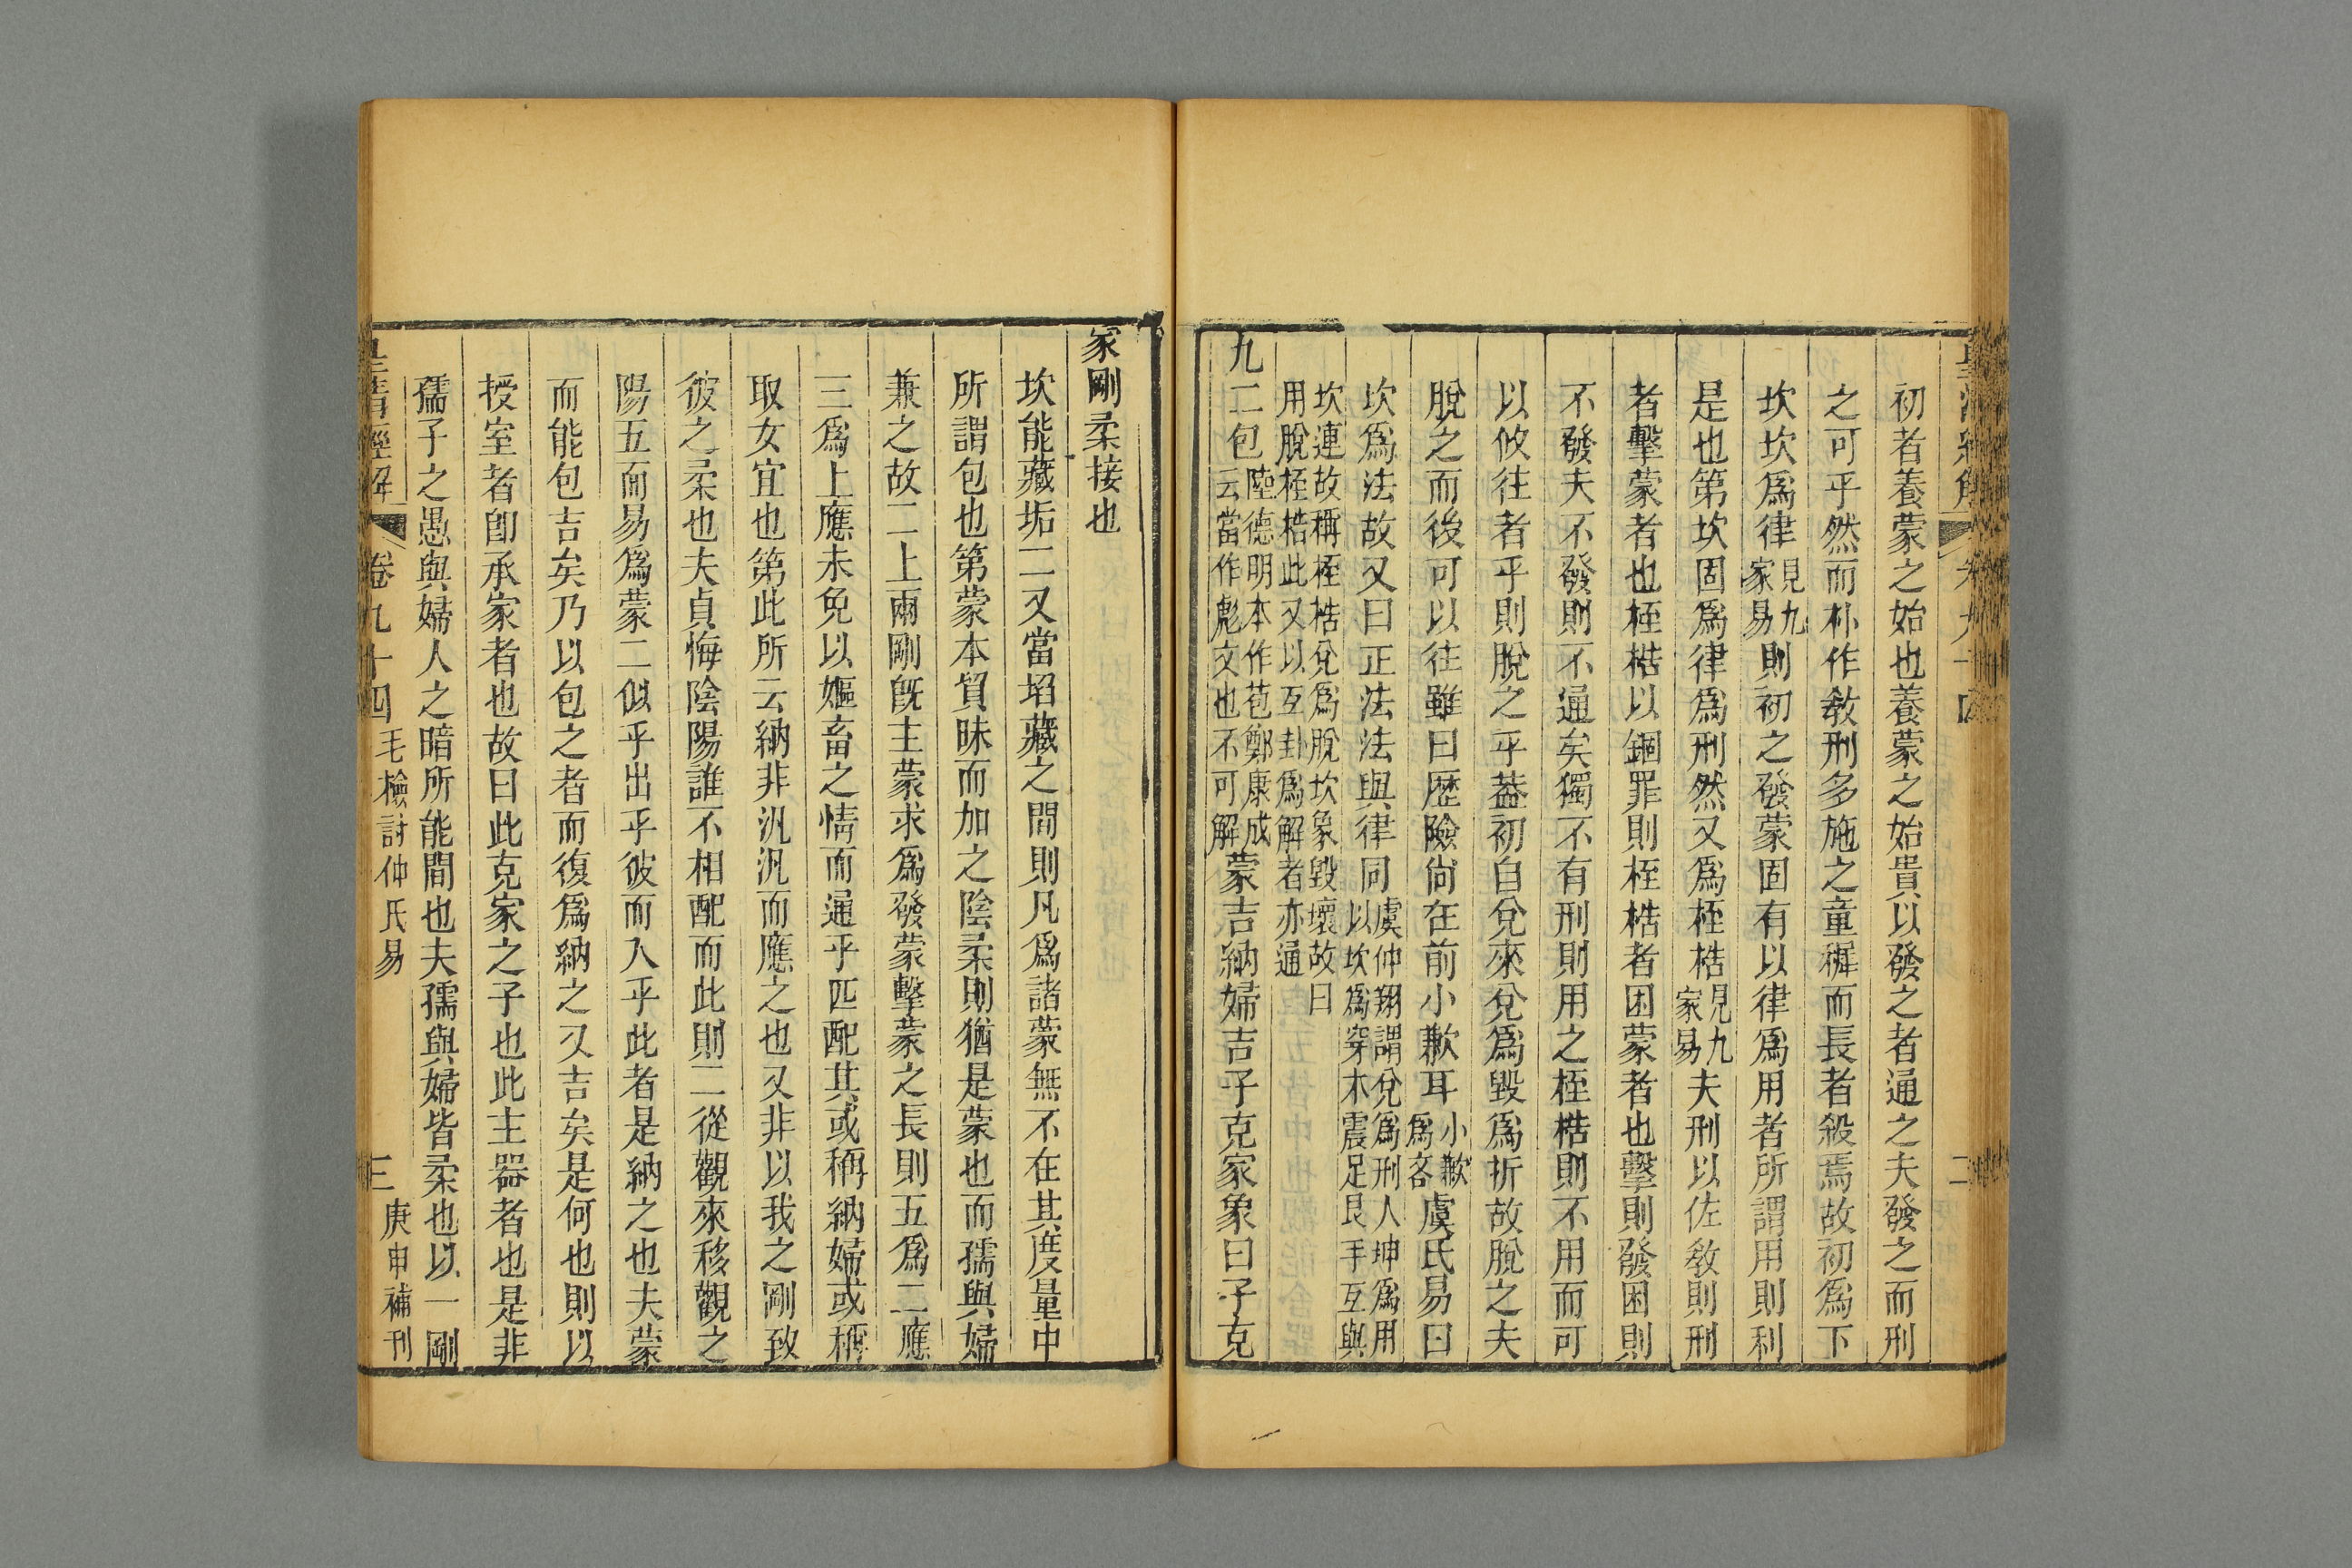 初者養蒙之始也養蒙之始貴以發之者通之夫發之而刑
之可乎然而朴作敎刑多施之童穉而長者殺焉故初爲下
坎坎爲律見九家易則初之發蒙固有以律爲用者所謂用則利
是也第坎固爲律爲刑然又爲桎梏見九家易夫刑以佐敎則刑
者擊蒙者也桎梏以錮罪則桎梏者困蒙者也擊則發困則
不發夫不發則不通矣獨不有刑則用之桎梏則不用而可
以攸往者乎則脫之乎葢初自兌來兌爲毀爲折故脫之夫
脫之而後可以往雖曰歷險尙在前小歉耳小歉爲吝虞氏易曰
坎爲法故又曰正法法與律同虞仲翔謂兌爲刑人坤爲用以坎爲穿木震足艮手互與
坎連故稱桎梏兌爲脫坎象毀壞故曰
用脫桎梏此又以互卦爲解者亦通
九二包陸德明本作苞鄭康成云當作彪文也不可解蒙吉納婦吉子克家象曰子克
家剛柔接也
坎能藏垢二又當掐藏之間則凡爲諸蒙無不在其度量中
所謂包也第蒙本質昧而加之陰柔則猶是蒙也而孺與婦
兼之故二上兩剛旣主蒙求爲發蒙擊蒙之長則五爲二應
三爲上應未免以嫗畜之情而通乎匹配其或稱納婦或稱
取女宜也第此所云納非汎汎而應之也又非以我之剛致
彼之柔也夫貞悔陰陽誰不相配而此則二從觀來移觀之
陽五而易爲蒙二似乎出乎彼而入乎此者是納之也夫蒙
而能包吉矣乃以包之者而復爲納之又吉矣是何也則以
授室者卽承家者也故曰此克家之子也此主器者也是非
孺子之愚與婦人之暗所能間也夫孺與婦皆柔也以一剛
皇淸經解
卷九十四
毛檢討仲氏易
三
庚申補刊